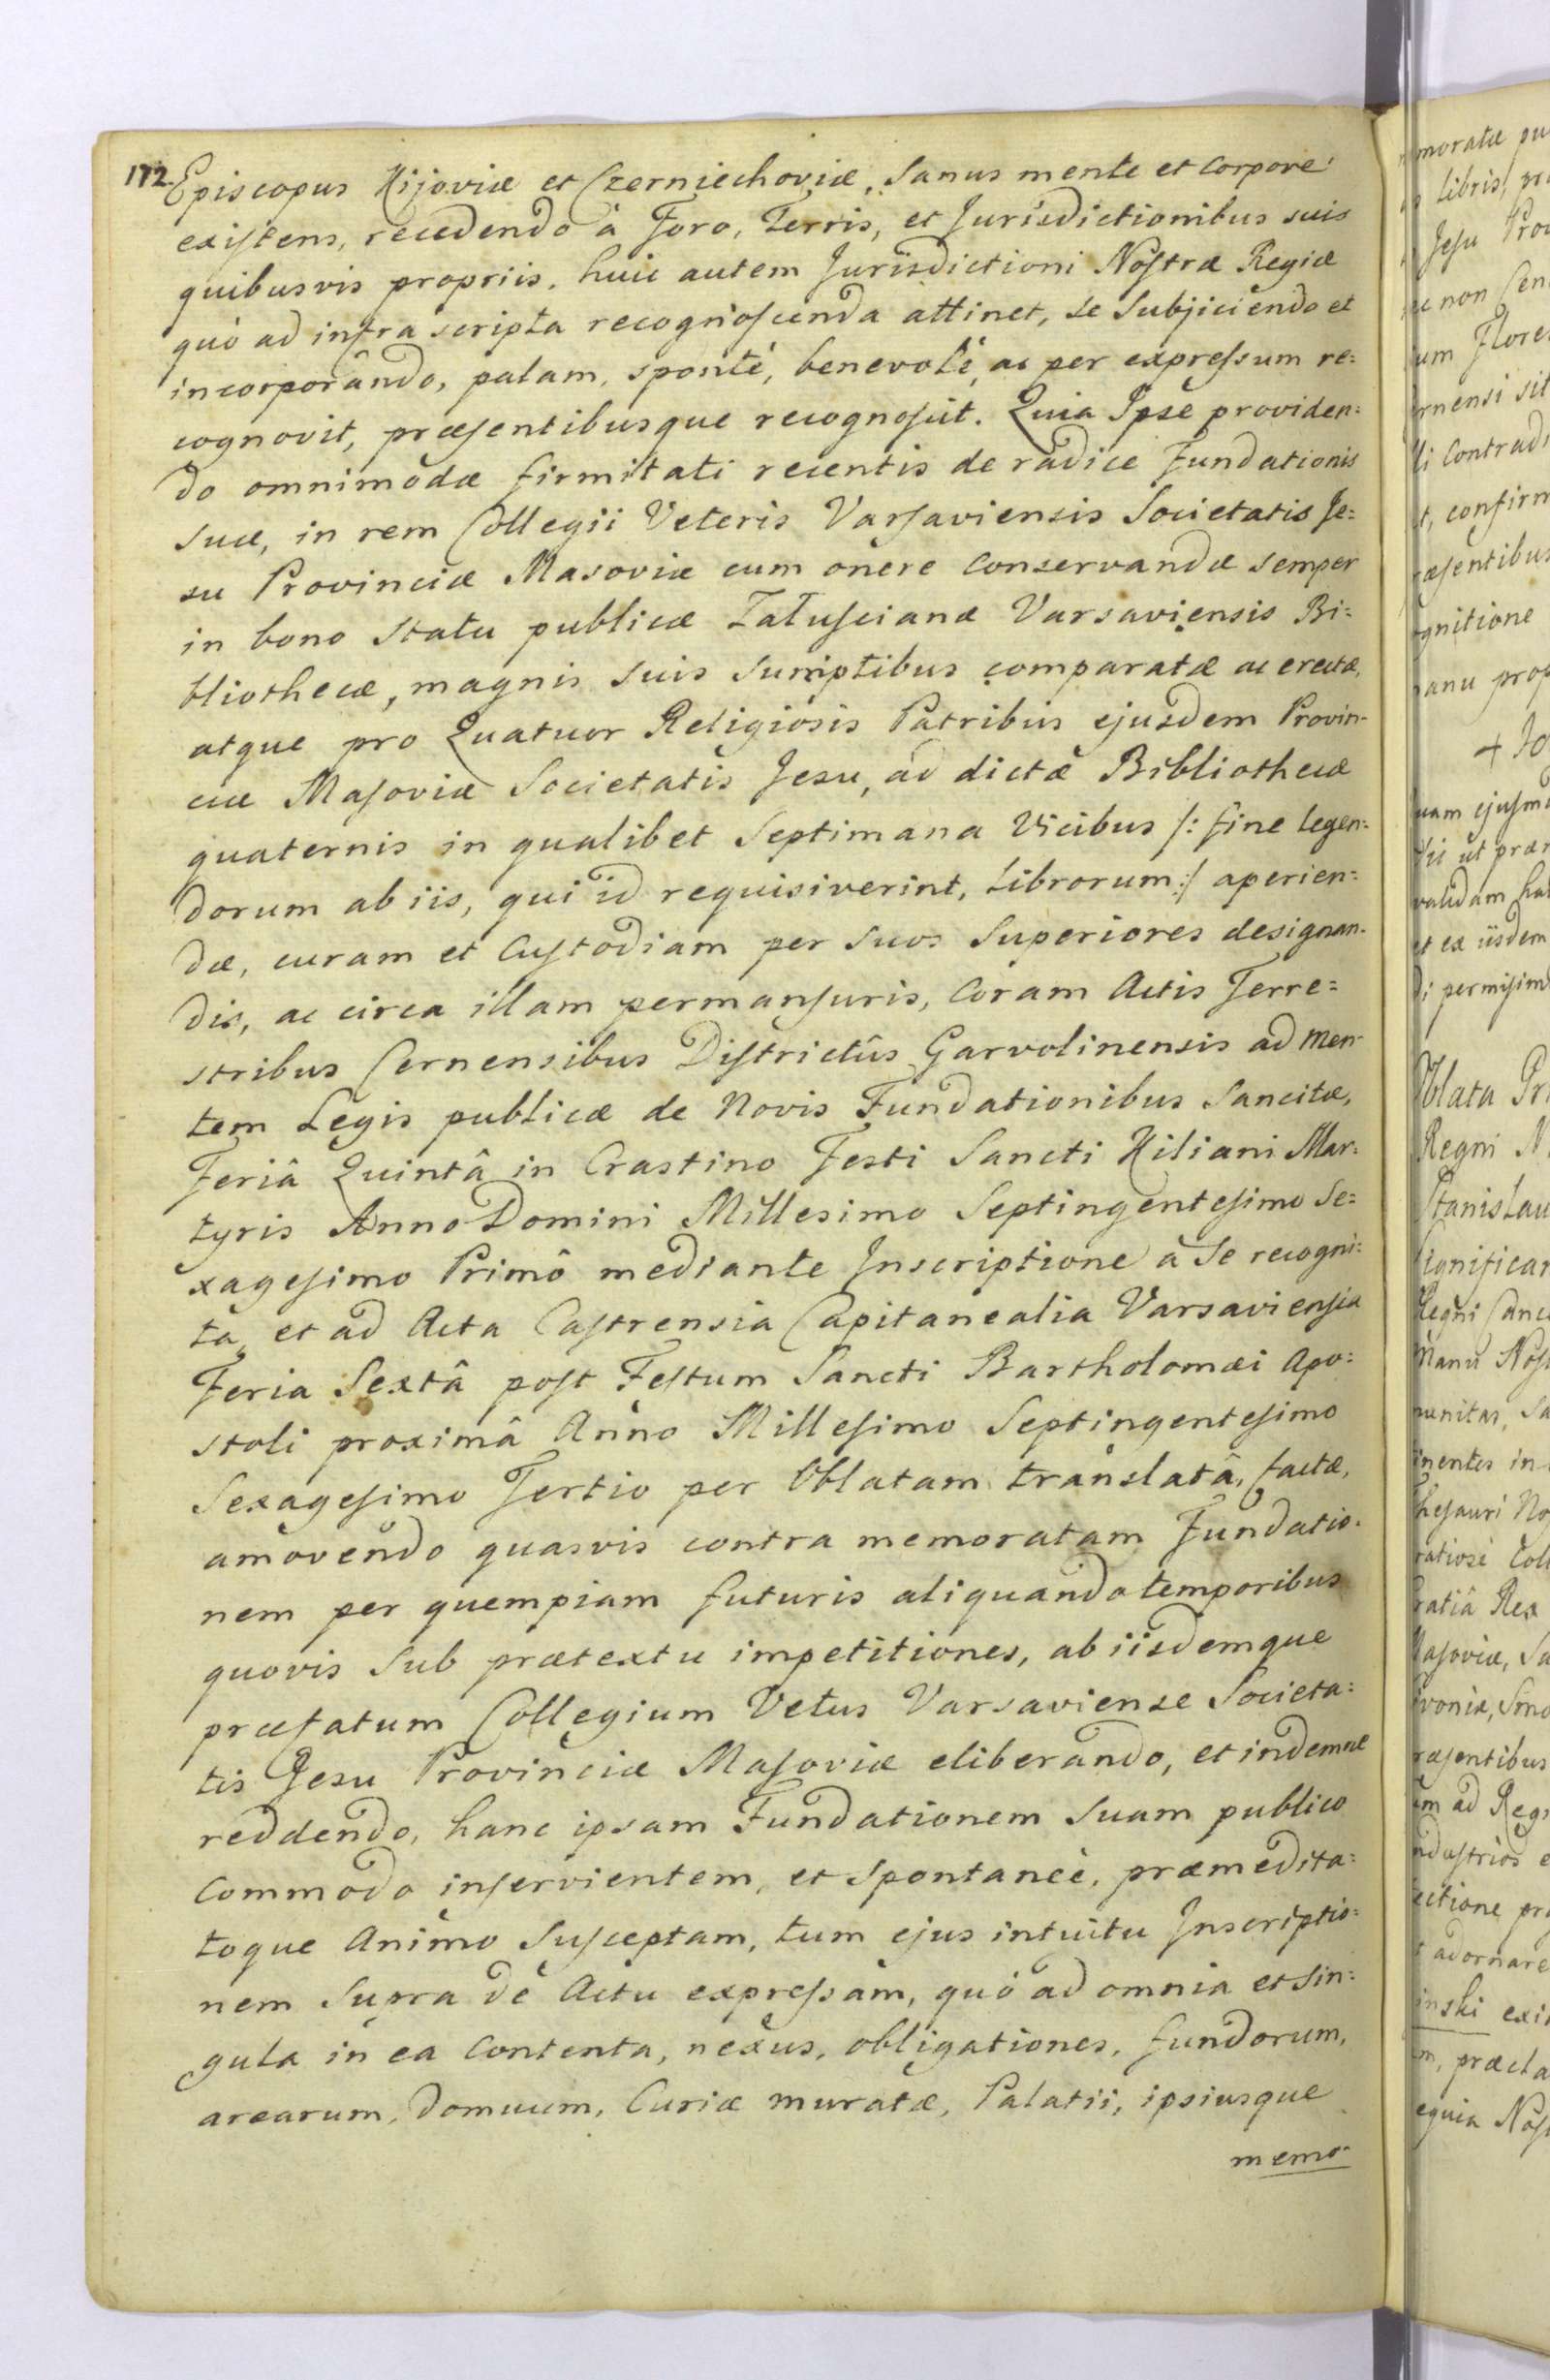 172. Episcopus Kijoviæ et Czerniechoviæ, Sanus mente et Corpore
existens, recedendo à Foro, Terris, et Jurisdictionibus suis
quibusvis propriis, huic autem Jurisdictioni Nostræ Regiæ
quò ad infra scripta recognoscenda attinet, se Subjiciendo et
incorporando, palam, spontè, benevolè, ac per expressum re=
cognovit, præsentibusque recognoscit. Quia Ipse providen=
do omnimodæ firmitati recentis de radice Fundationis
Suæ, in rem Collegii Veteris Varsaviensis Societatis Je=
su Provinciæ Masoviæ cum onere Conservandæ semper
in bono Statu publicæ Zalusciana Varsaviensis Bi=
bliothecæ, magnis Suis Sumptibus comparatæ ac erectæ,
atque pro Quatuor Religiosis Patribus ejusdem Provin-
ciæ Masoviæ Societatis Jesu, ad dictæ Bibliothecæ
quaternis in qualibet Septimana Vicibus /: fine legen=
dorum ab iis, qui id requisiverint, Librorum :/ aperien=
dæ, curam et Custodiam per Suos Superiores designan-
dis, ac circa illam permansuris, Coram Actis Terre=
stribus Cernensibus Districtûs Garvolinensis ad men-
tem Legis publicæ de Novis Fundationibus Sancitæ,
Feriâ Quintâ in Crastino Festi Sancti Kiliani Mar=
tyris Anno Domini Millesimo Septingentesimo Se=
xagesimo Primô mediante Inscriptione à Se recogni=
ta, et ad Acta Castrensia Capitanealia Varsaviensia
Feria Sextâ post Festum Sancti Bartholomæi Apo=
stoli proximâ Anno Millesimo Septingentesimo
Sexagesimo Tertio per Oblatam translatâ, factæ,
amovendo quasvis contra memoratam Fundatio=
nem per quempiam futuris aliquando temporibus
quovis Sub prætextu impetitiones, ab iisdemque
præfatum Collegium Vetus Varsaviense Societa=
tis Jesu Provinciæ Masoviæ eliberando, et indemne
reddendo, hanc ipsam Fundationem Suam publico
Commodo inservientem, et Spontaneè, præmedita=
toque Animo Susceptam, tum ejus intuitu Inscriptio=
nem Supra de Actu expressam, quò ad omnia et Sin=
gula in ea Contenta, nexus, obligationes, fundorum,
arearum, Domuum, Curiæ muratæ, Palatii, ipsiusque
memo-